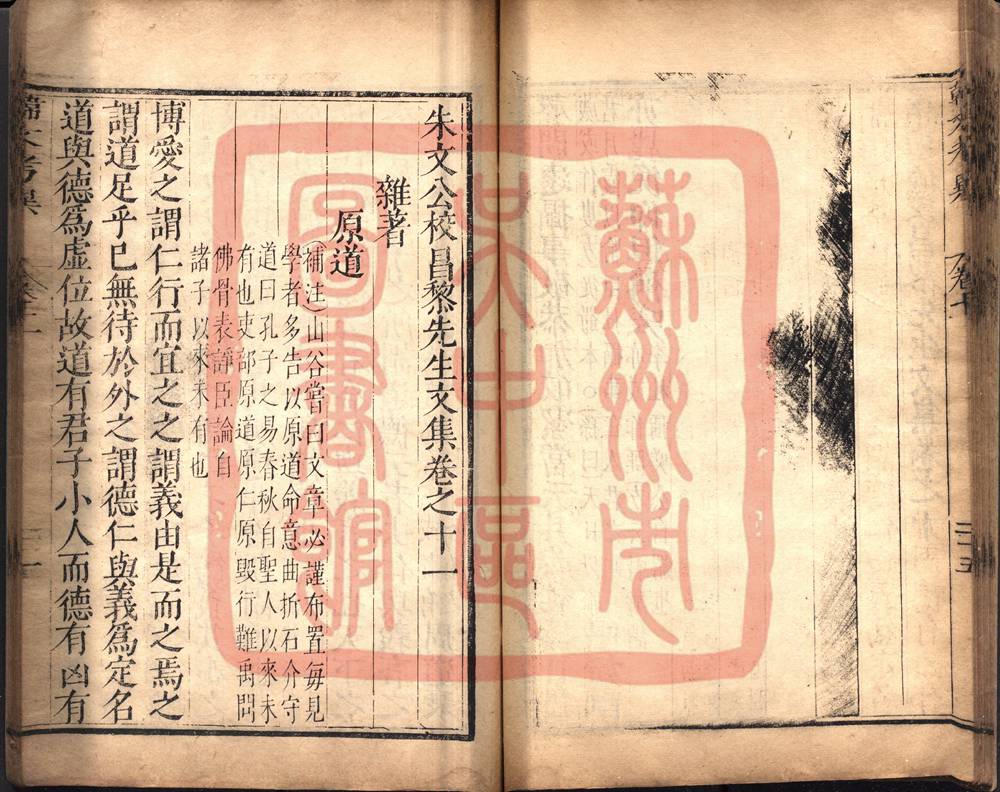 朱文公校昌黎先生文集卷之十一
雜著
原道
(補注)山谷嘗曰文章必謹布置每見
學者多告以原道命意曲折石介守
道曰孔子之易春秋自聖人以來未
有也吏部原道原仁原毀行難禹問
佛骨表諍臣論自
諸子以來未有也
博愛之謂仁行而宜之之謂義由是而之焉之
謂道足乎已無待於外之謂德仁與義爲定名
道與德爲虛位故道有君子小人而德有凶有
蘇州市
吳中區
圖書館